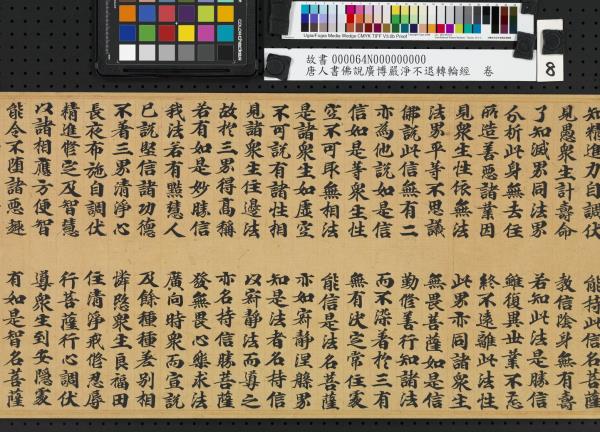 Ugra/Fogra Media Wedge CMYK TIFF V3.0b Proof
故書 000064N000000000
唐人書佛說廣博嚴淨不退轉輪經 卷
8
知精進力自調伏 能持此信名菩薩
見愚衆生計壽命 教信陰身無有壽
了知滅界同法界 若知此法是勝信
分析此身無去住 雖復異世業不忘
所造善惡諸業因 終不遠離此法性
見衆生性依無法 此界亦同諸衆生
法界平等不思議 無畏菩薩如是信
佛說此信無有二 勤修善行知諸法
亦為他說如是信 而不染著於三有
信如是等衆生性 無有决定常住處
空不可取無相法 能信是法名菩薩
是諸衆生如虛空 亦如寂靜涅槃界
不可說有諸性相 知是法者名持信
見諸衆生住邊法 以寂靜法而導之
故於三界得高稱 亦名持信勝菩薩
若有如是妙勝信 發無畏心樂求法
我法若有黠慧人 廣向時衆而宣說
已說堅信諸功德 及餘種種差別相
不著三界清淨心 憐愍衆生良福田
長夜布施自調伏 住清淨戒修忍辱
精進修定及智慧 行菩薩行心調伏
以諸相應方便智 導衆生到安隱處
能令不墮諸惡趣 有如是智名菩薩